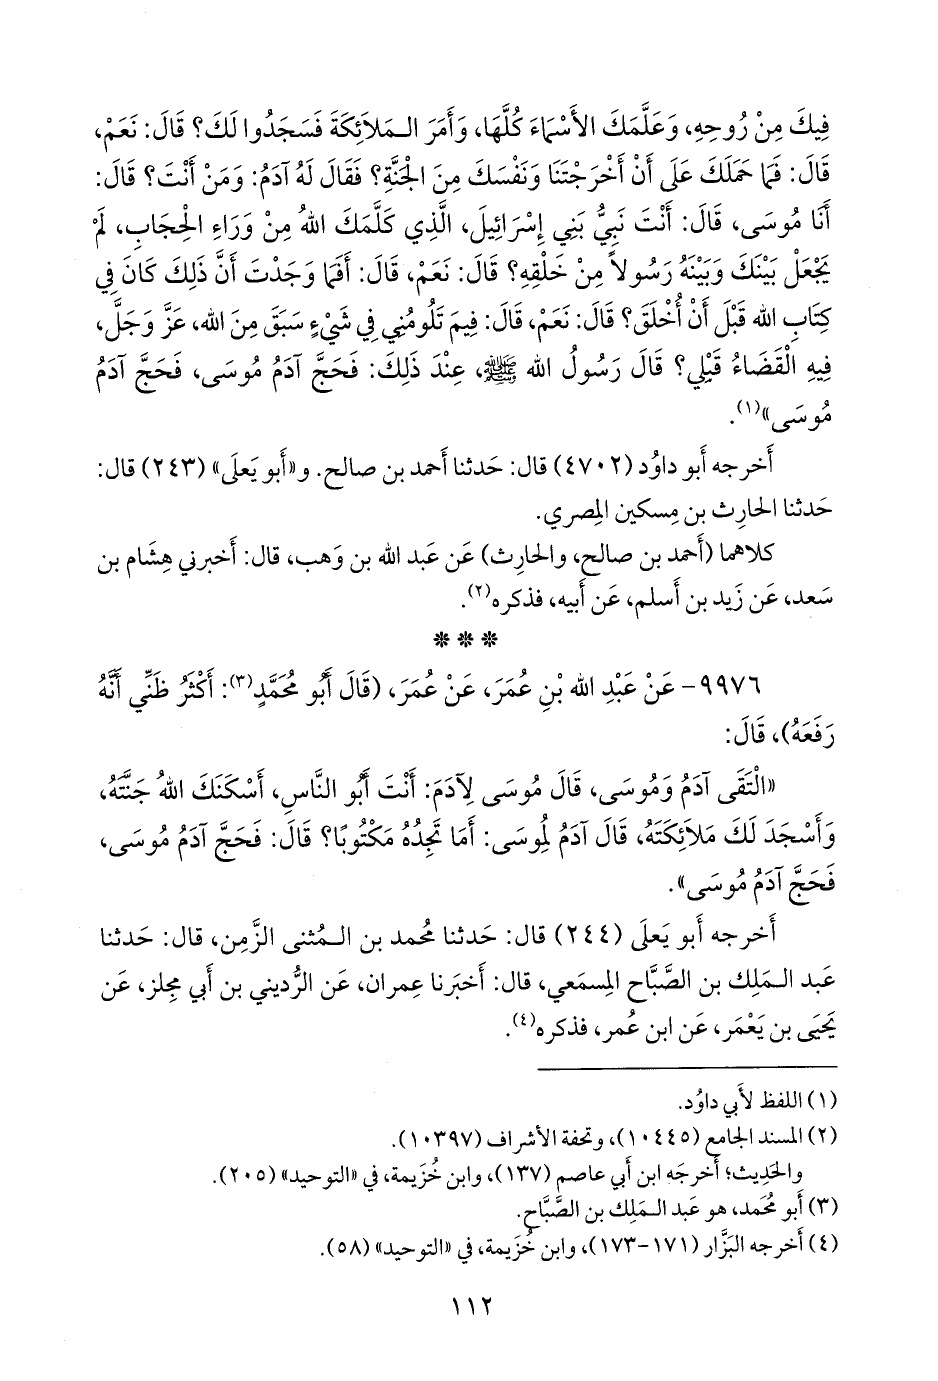 فِيكَ مِنْ رُوحِهِ، وَعَلَّمَكَ الأَسْمَاءَ كُلَّهَا، وَأَمَرَ الـمَلاَئِكَةَ فَسَجَدُوا لَكَ؟ قَالَ: نَعَمْ،
قَالَ: فَمَا حَمَلَكَ عَلَى أَنْ أَخْرَجْتَنَا وَنَفْسَكَ مِنَ الْجَنَّةِ؟ فَقَالَ لَهُ آدَمُ: وَمَنْ أَنْتَ؟ قَالَ:
أَنَا مُوسَى، قَالَ: أَنْتَ نَبِيُّ بَنِي إِسْرَائِيلَ، الَّذِي كَلَّمَكَ اللهُ مِنْ وَرَاءِ الْحِجَابِ، لَمْ
يَجْعَلْ بَيْنَكَ وَبَيْنَهُ رَسُولاً مِنْ خَلْقِهِ؟ قَالَ: نَعَمْ، قَالَ: أَفَمَا وَجَدْتَ أَنَّ ذَلِكَ كَانَ فِي
كِتَابِ الله قَبْلَ أَنْ أُخْلَقَ؟ قَالَ: نَعَمْ، قَالَ: فِيمَ تَلُومُنِي فِي شَيْءٍ سَبَقَ مِنَ الله، عَزَّ وَجَلَّ،
فِيهِ الْقَضَاءُ قَبْلِي؟ قَالَ رَسُولُ الله ﷺ، عِنْدَ ذَلِكَ: فَحَجَّ آدَمُ مُوسَى، فَحَجَّ آدَمُ
مُوسَى»(١).
أَخرجه أَبو داوُد (٤٧٠٢) قال: حَدثنا أَحمد بن صالح. و«أَبو يَعلَى» (٢٤٣) قال:
حَدثنا الحارِث بن مِسكين المِصري.
كلاهما (أَحمد بن صالح، والحارِث) عَن عَبد الله بن وَهب، قال: أَخبرني هِشَام بن
سَعد، عَن زَيد بن أَسلم، عَن أَبيه، فذكره(٢).
* * *
٩٩٧٦- عَنْ عَبْدِ الله بْنِ عُمَرَ، عَنْ عُمَرَ، (قَالَ أَبُو مُحَمَّدٍ(٣): أَكْثَرُ ظَنِّي أَنَّهُ
رَفَعَهُ)، قَالَ:
«الْتَقَى آدَمُ وَمُوسَى، قَالَ مُوسَى لِآدَمَ: أَنْتَ أَبُو النَّاسِ، أَسْكَنَكَ اللهُ جَنَّتَهُ،
وَأَسْجَدَ لَكَ مَلاَئِكَتَهُ، قَالَ آدَمُ لِمُوسَى: أَمَا تَجِدُهُ مَكْتُوبًا؟ قَالَ: فَحَجَّ آدَمُ مُوسَى،
فَحَجَّ آدَمُ مُوسَى».
أَخرجه أَبو يَعلَى (٢٤٤) قال: حَدثنا مُحمد بن الـمُثنى الزَّمِن، قال: حَدثنا
عَبد الـمَلِك بن الصَّبَّاح المِسمَعي، قال: أَخبَرنا عِمران، عَن الرُّديني بن أَبي مِجلز، عَن
يَحيَى بن يَعْمَر، عَن ابن عُمر، فذكره(٤).
(١) اللفظ لأَبي داوُد.
(٢) المسند الجامع (١٠٤٤٥)، وتحفة الأشراف (١٠٣٩٧).
والحَدِيث؛ أَخرجَه ابن أَبي عاصم (١٣٧)، وابن خُزَيمة، في «التوحيد» (٢٠٥).
(٣) أَبو مُحَمد، هو عَبد الـمَلِك بن الصَّبَّاح.
(٤) أَخرجه البَزَّار (١٧١-١٧٣)، وابن خُزَيمة، في «التوحيد» (٥٨).
١١٢